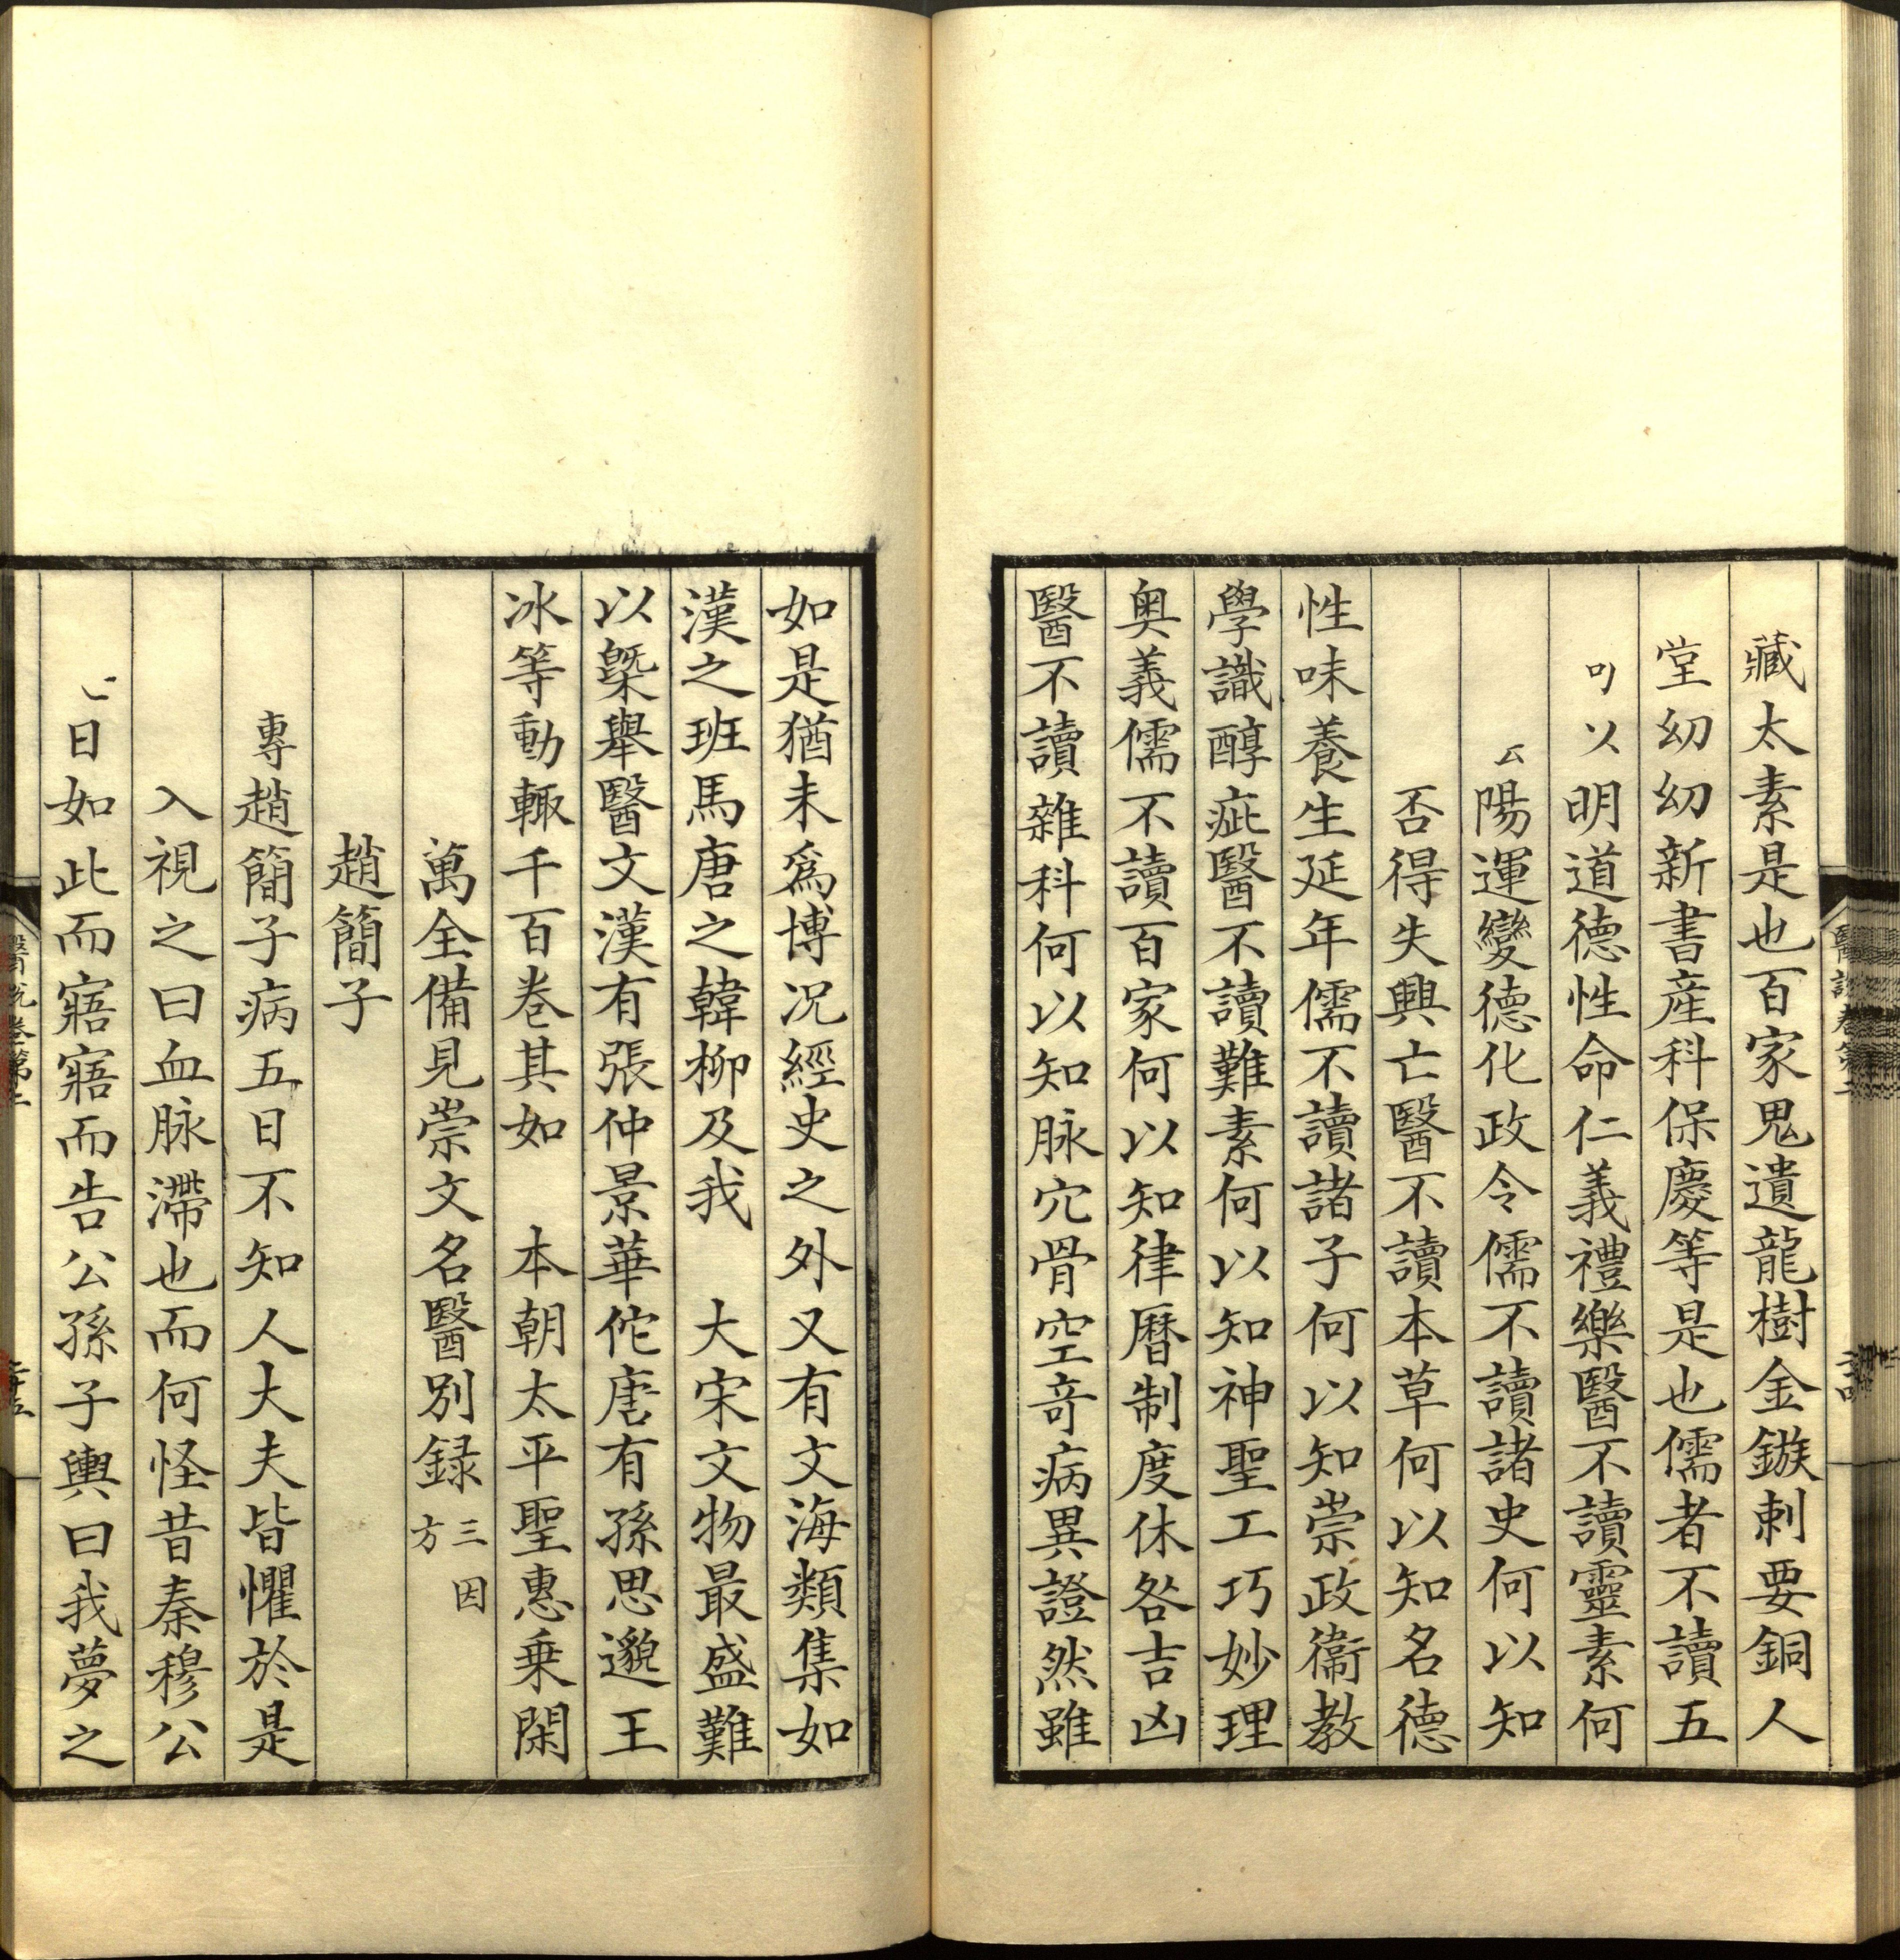 藏太素是也百家鬼遺龍樹金鏃刺要銅人
堂幼幼新書産科保慶等是也儒者不讀五
以明道德性命仁義禮樂醫不讀靈素何
陽運變德化政令儒不讀諸史何以知
否得失興亡醫不讀本草何以知名德
性味養生延年儒不讀諸子何以知崇政衞教
學識醇疵醫不讀難素何以知神聖工巧妙理
奥義儒不讀百家何以知律暦制度休咎吉凶
醫不讀雜科何以知脉穴骨空竒病異證然雖
醫說卷第二
二十四
如是猶未爲博况經史之外又有文海類集如
漢之班馬唐之韓柳及我 大宋文物最盛難
以槩舉醫文漢有張仲景華佗唐有孫思邈王
冰等動輙千百卷其如 本朝太平聖惠乗閑
萬全備見崇文名醫別録三因方
趙簡子
專趙簡子病五日不知人大夫皆懼於是
入視之曰血脉滯也而何怪昔秦穆公
日如此而寤寤而告公孫子輿曰我夢之
醫說卷第二
二十五